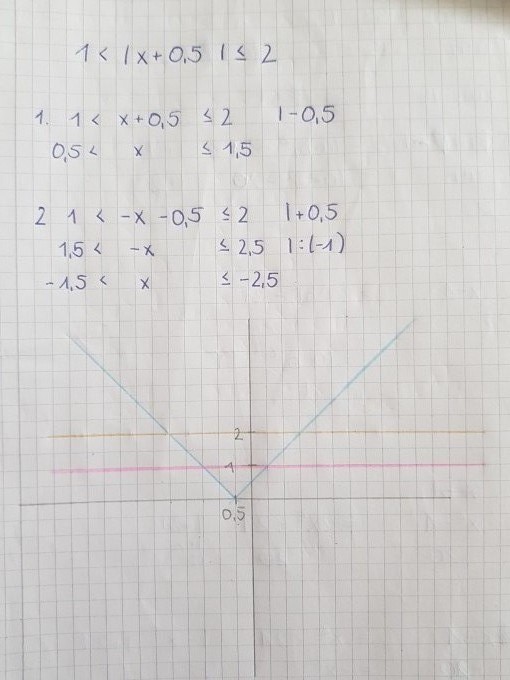 1 < |x+0,5| ≤ 2
1. 1 < x+0,5 ≤ 2 |-0,5
0,5 < x ≤ 1,5
2 1 < -x -0,5 ≤ 2 |+0,5
1,5 < -x ≤ 2,5 |:(-1)
-1,5 < x ≤ -2,5
2
1
0,5